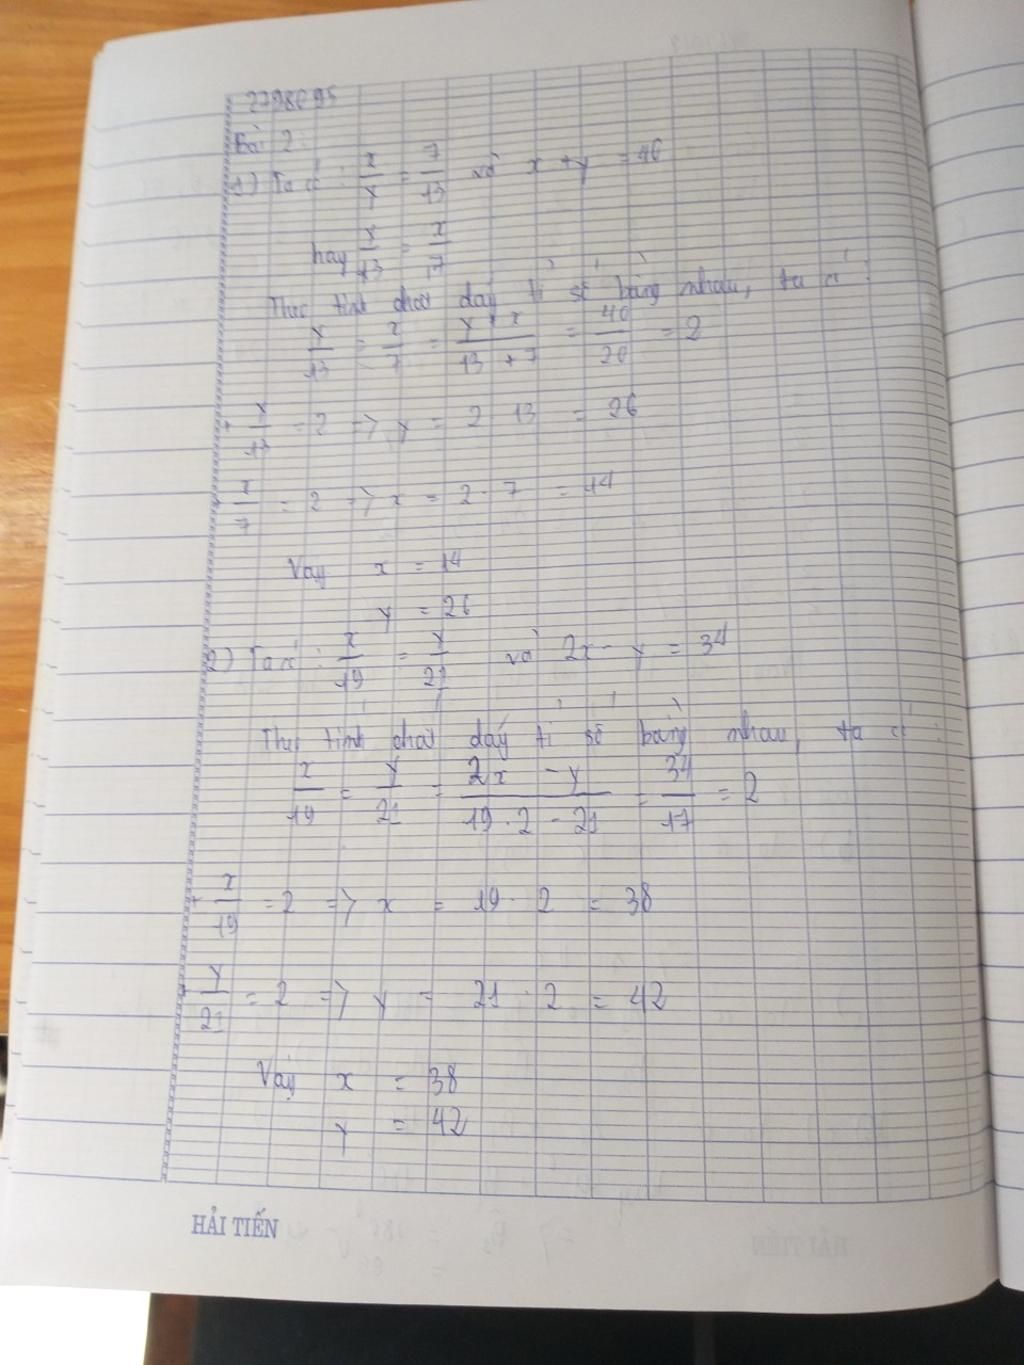 2798095
Bài 2:
1) Ta có: x/y = 7/13 và x + y = 40
hay y/13 = x/7
Theo tính chất dãy tỉ số bằng nhau, ta có:
y/13 = x/7 = y + x/13 + 7 = 40/20 = 2
+ y/13 = 2 => y = 2 · 13 = 26
+ x/7 = 2 => x = 2 · 7 = 14
Vậy x = 14
y = 26
2) Ta có: x/19 = y/21 và 2x - y = 34
Theo tính chất dãy tỉ số bằng nhau, ta có:
x/19 = y/21 = 2x - y/19 · 2 - 21 = 34/17 = 2
+ x/19 = 2 => x = 19 · 2 = 38
+ y/21 = 2 => y = 21 · 2 = 42
Vậy x = 38
y = 42
HẢI TIẾN